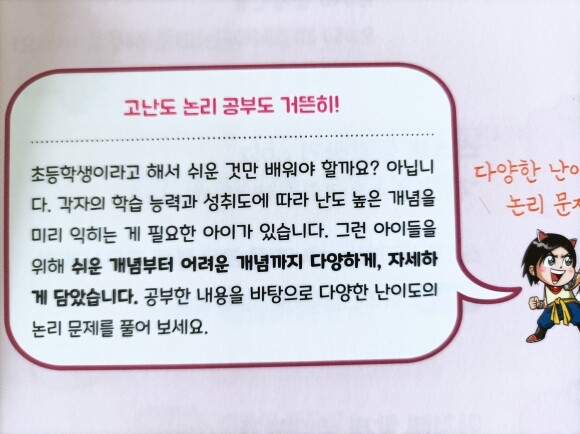 고난도 논리 공부도 거뜬히!
초등학생이라고 해서 쉬운 것만 배워야 할까요? 아닙니
다. 각자의 학습 능력과 성취도에 따라 난도 높은 개념을
미리 익히는 게 필요한 아이가 있습니다. 그런 아이들을
위해 쉬운 개념부터 어려운 개념까지 다양하게, 자세하
게 담았습니다. 공부한 내용을 바탕으로 다양한 난이도의
논리 문제를 풀어 보세요.
다양한
논리